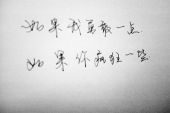 如果我勇敢一点
如果你疯狂一些